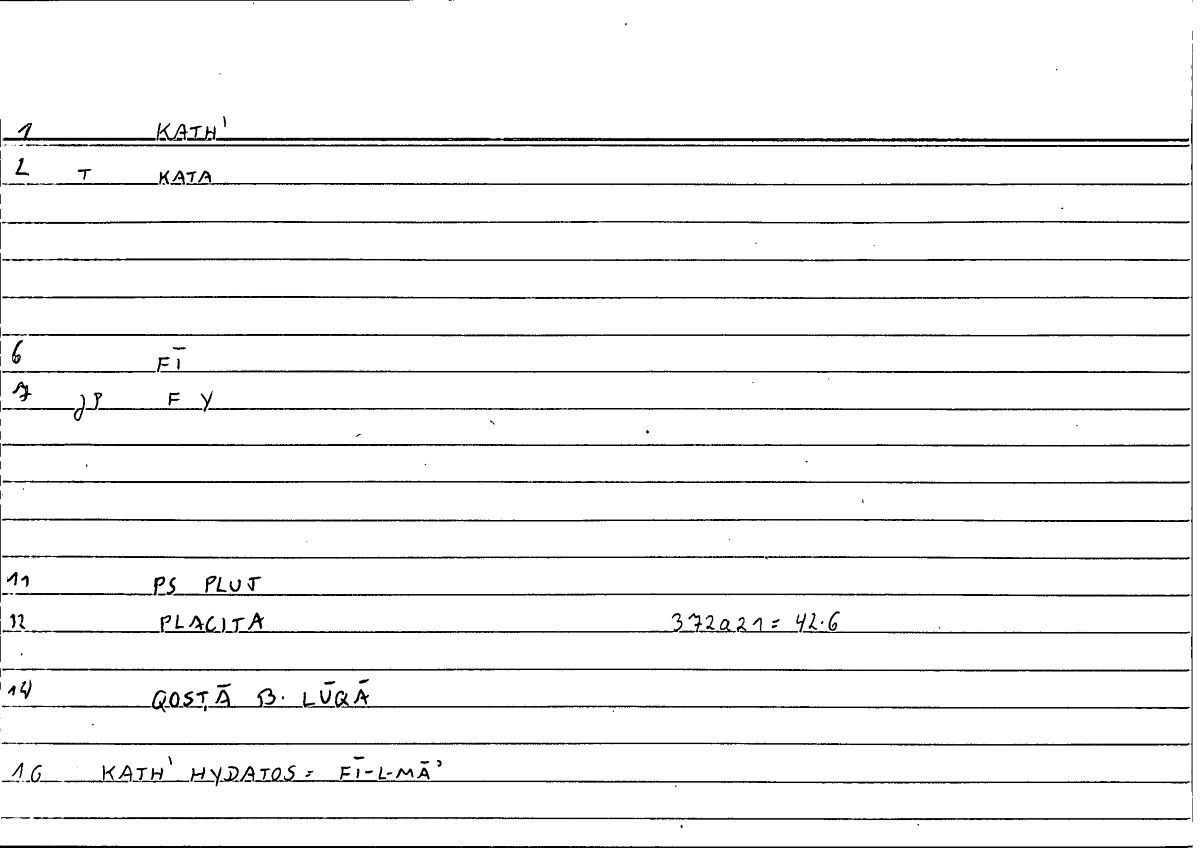 1 KATH'
2 T KATA
6 FĪ
7 JP F Y
11 PS PLUT
12 PLACITA 372a21 = 42.6
14 QOSṬĀ B. LŪQĀ
16 KATH' HYDATOS = FĪ-L-MĀʾ